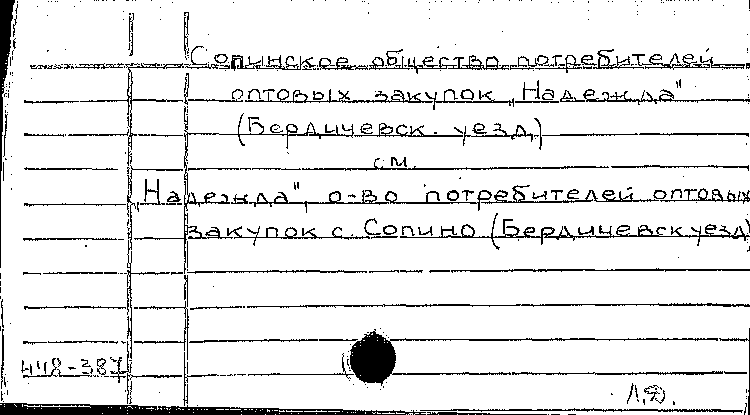 Сопинское общество потребителей
оптовых закупок „Надежда"
(Бердичевск. уезд,)
см.
„Надежда", о-во потребителей оптовых
закупок с. Сопино (Бердичевск уезд)
448-387
Л.Д.